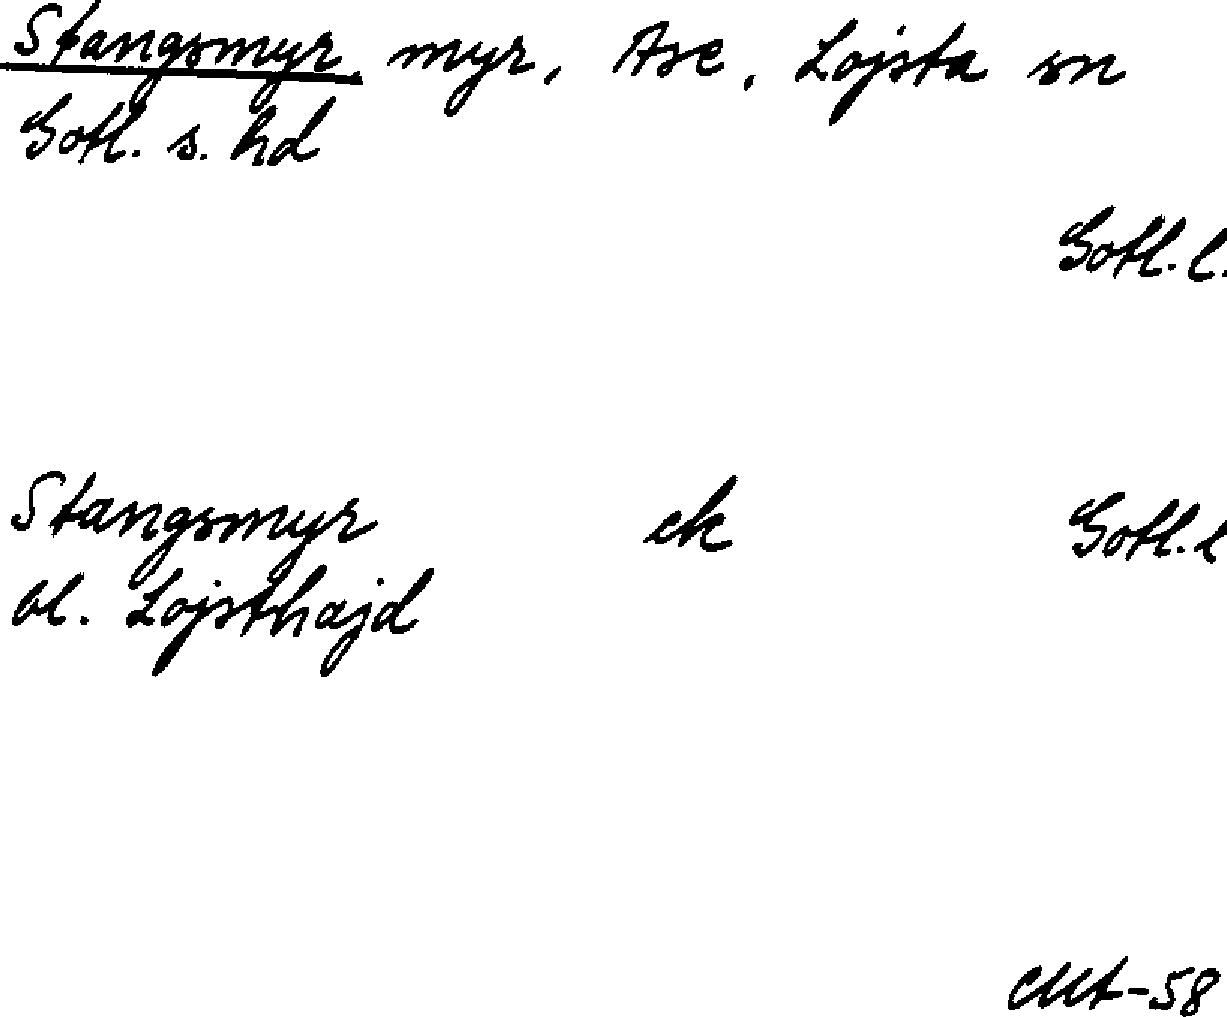 Stangsmyr, myr, Ase, Lojsta sn
Gotl. s. hd
Gotl. l.
Stangsmyr ek Gotl. l
bl. Lojsthajd